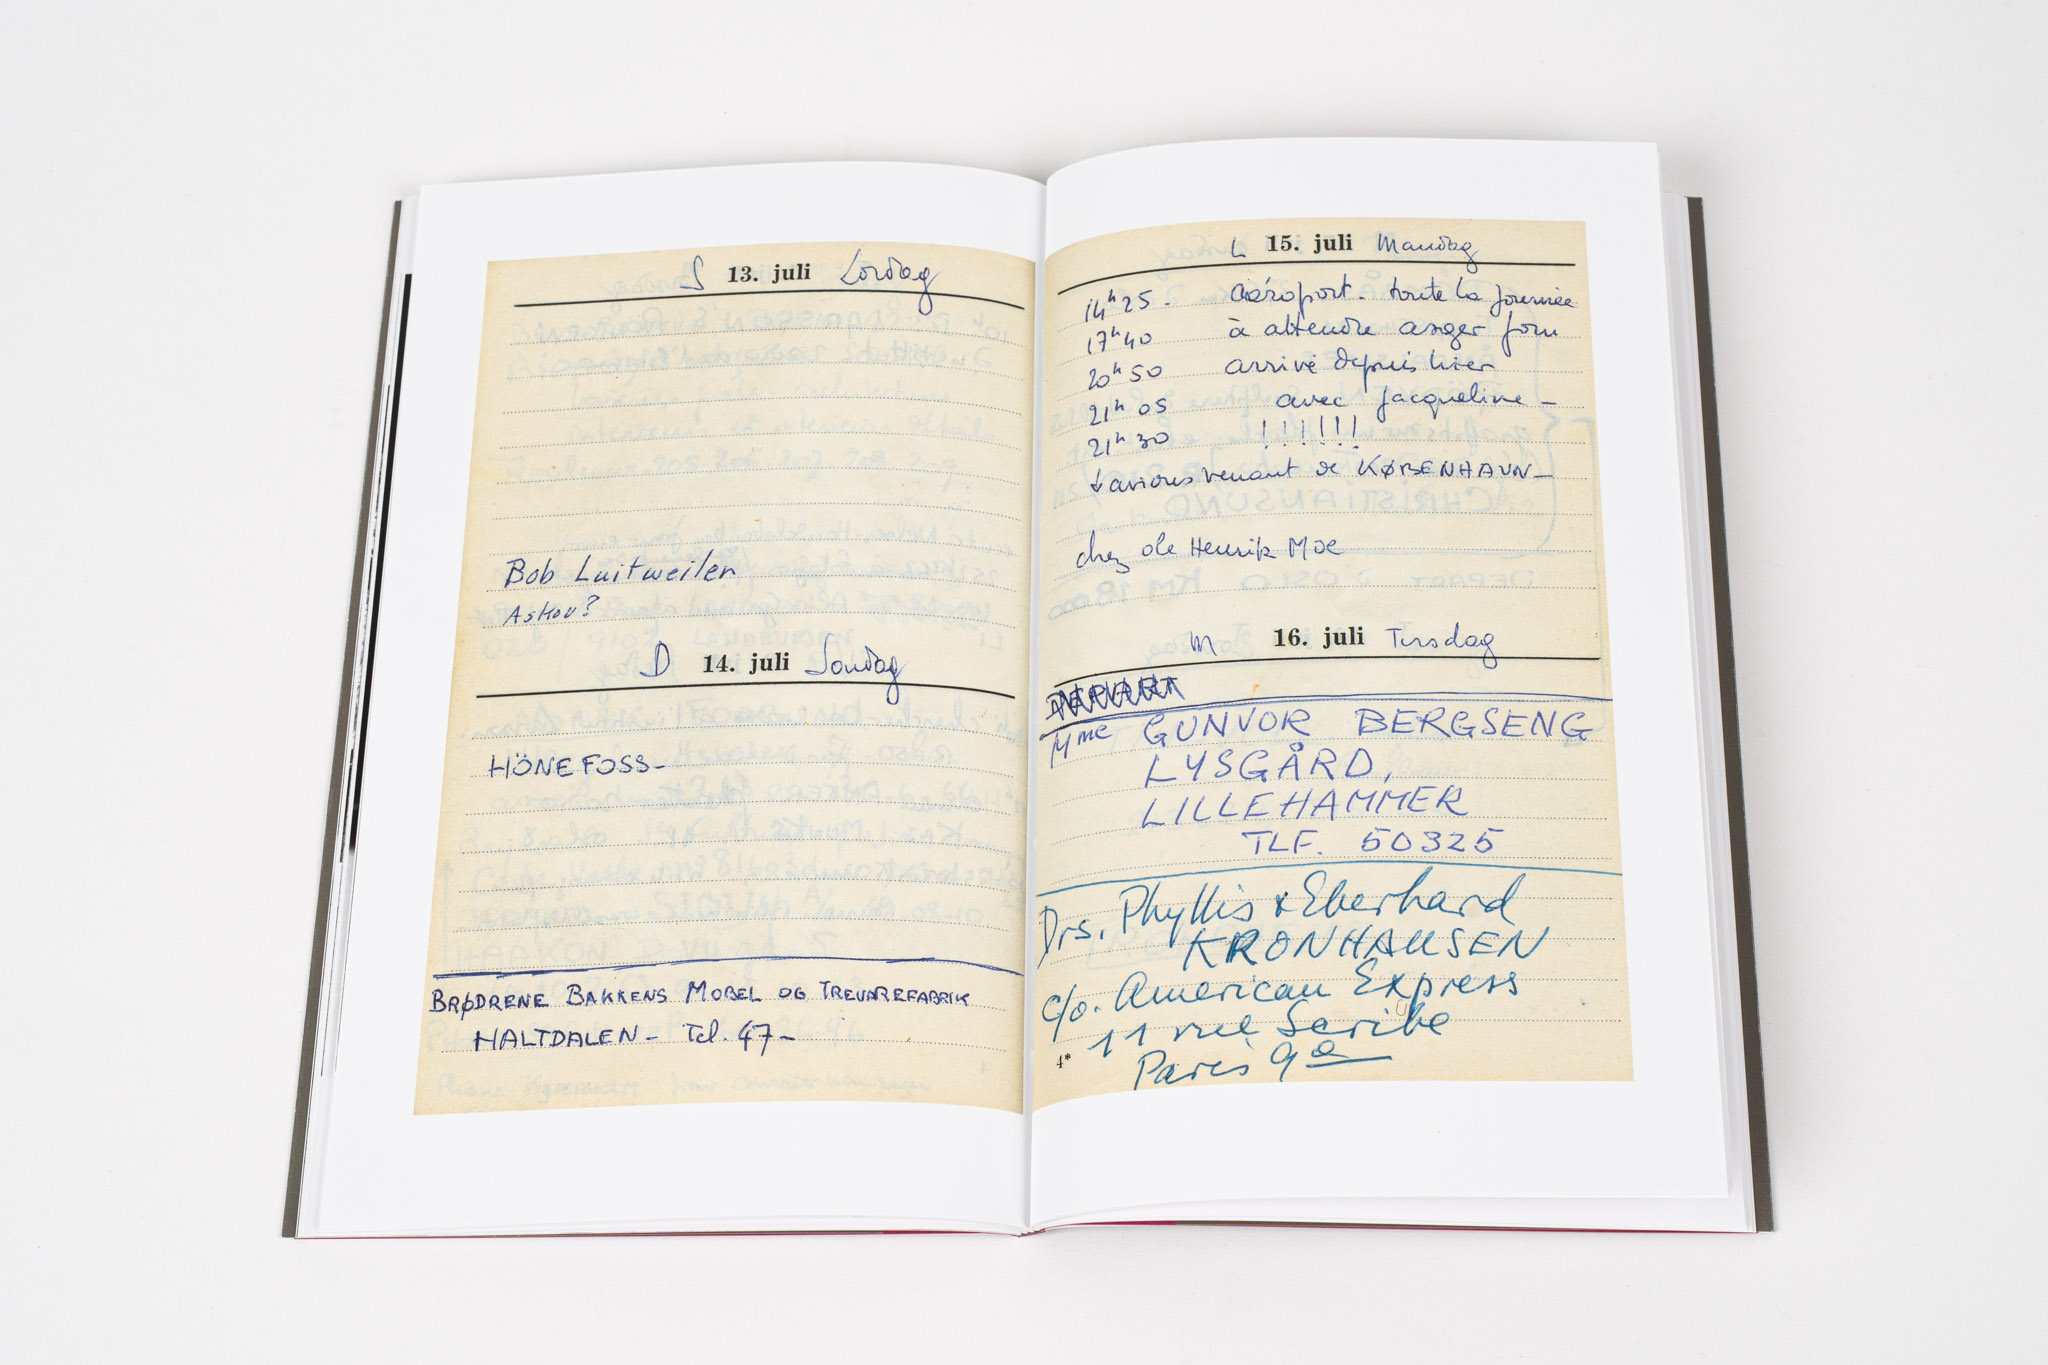 S 13. juli Lordag
Bob Luitweiler
Askov?
D 14. juli Sondag
HÖNEFOSS-
BRØDRENE BAKKENS MOBEL OG TREVAREFABRIK
HALTDALEN - Tel. 47-
L 15. juli Mandag
14h25 - aéroport. toute la journée
17h40 à attendre asger jorn
20h50 arrivé depuis hier
21h05 avec Jacqueline -
21h30 !!!!!!
avions venant de KØBENHAVN-
chez ole Henrik Moe
M 16. juli Tirsdag
Mme GUNVOR BERGSENG
LYSGÅRD,
LILLEHAMMER
TLF. 50325
Drs. Phyllis & Eberhard
KRONHAUSEN
c/o. American Express
11 rue Scribe
Paris 9e
4*